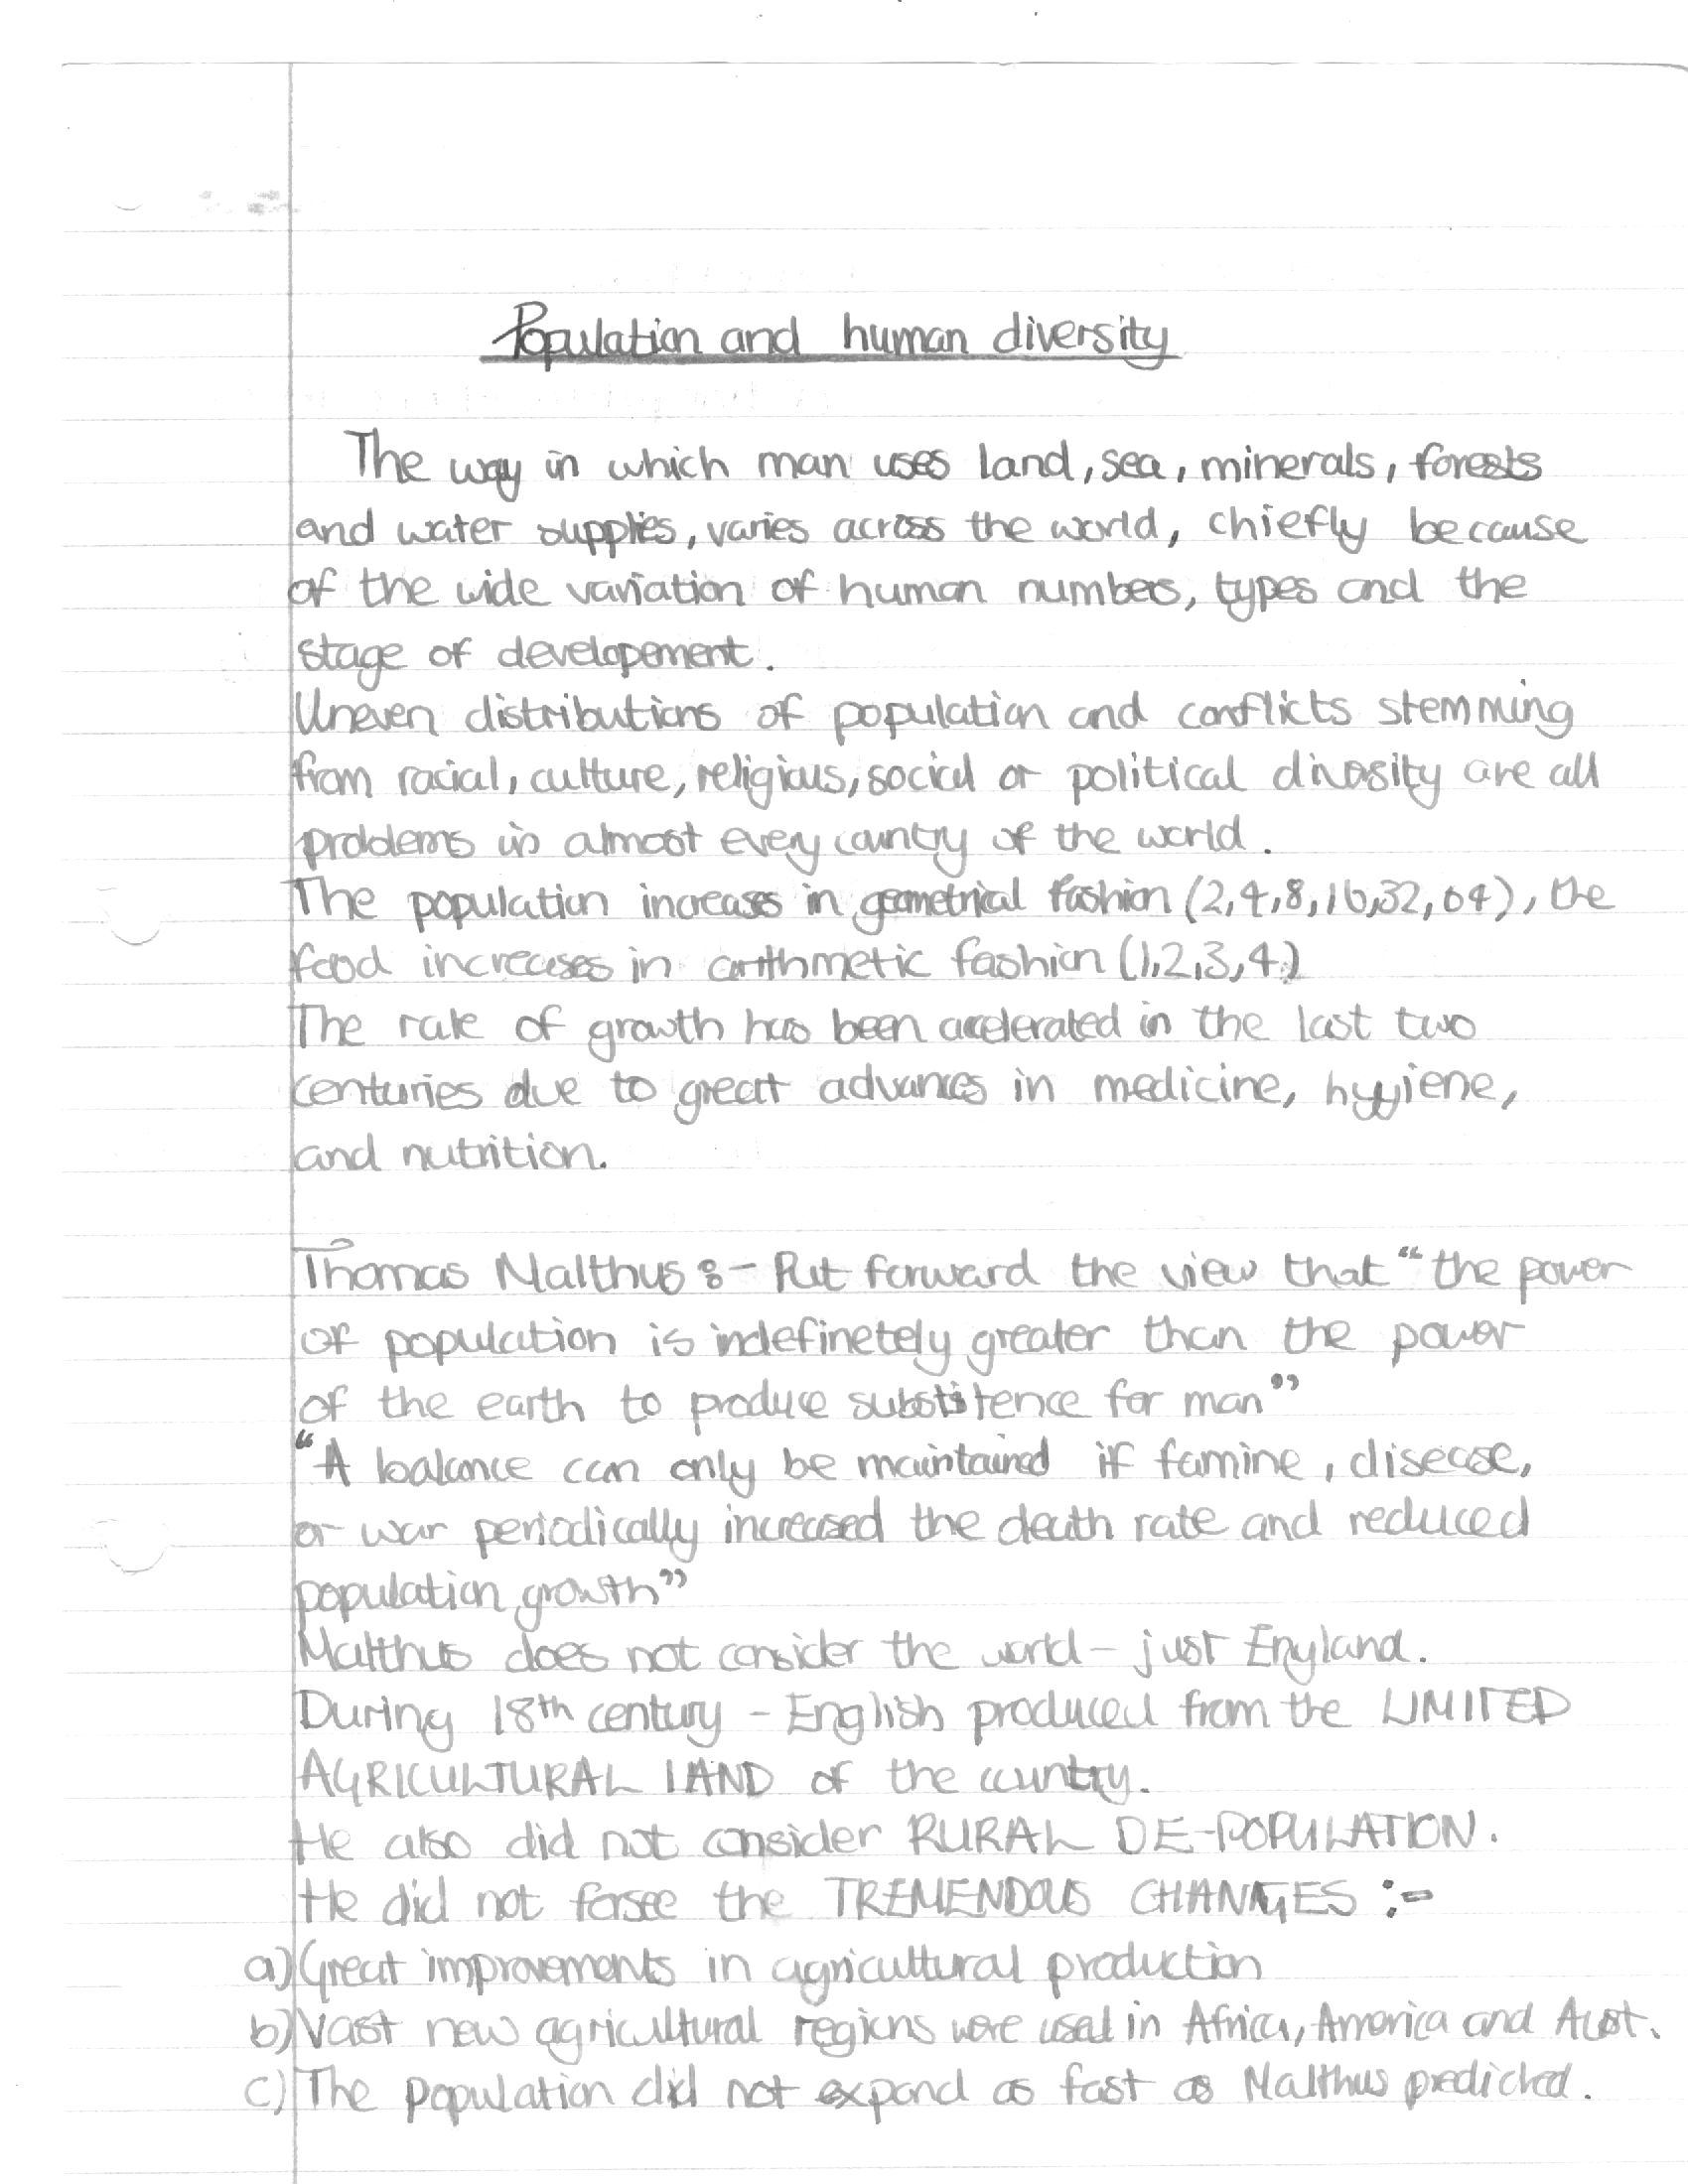 Population and human diversity
The way in which man uses land, sea, minerals, forests
and water supplies, varies across the world, chiefly because
of the wide variation of human numbers, types and the
stage of developement.
Uneven distributions of population and conflicts stemming
from racial, culture, religious, social or political diversity are all
problems in almost every country of the world.
The population increases in geometrical fashion (2,4,8,16,32,64), the
food increases in arithmetic fashion (1,2,3,4)
The rate of growth has been accelerated in the last two
centuries due to great advances in medicine, hygiene,
and nutrition.
Thomas Malthus :- Put forward the view that "the power
of population is indefinetely greater than the power
of the earth to produce substitence for man"
"A balance can only be maintained if famine, disease,
or war periodically increased the death rate and reduced
population growth"
Malthus does not consider the world - just England.
During 18th century - English produced from the LIMITED
AGRICULTURAL LAND of the country.
He also did not consider RURAL DE-POPULATION.
He did not forsee the TREMENDOUS CHANGES :-
a) Great improvements in agricultural production
b) Vast new agricultural regions were used in Africa, America and Aust.
c) The population did not expand as fast as Malthus predicted.